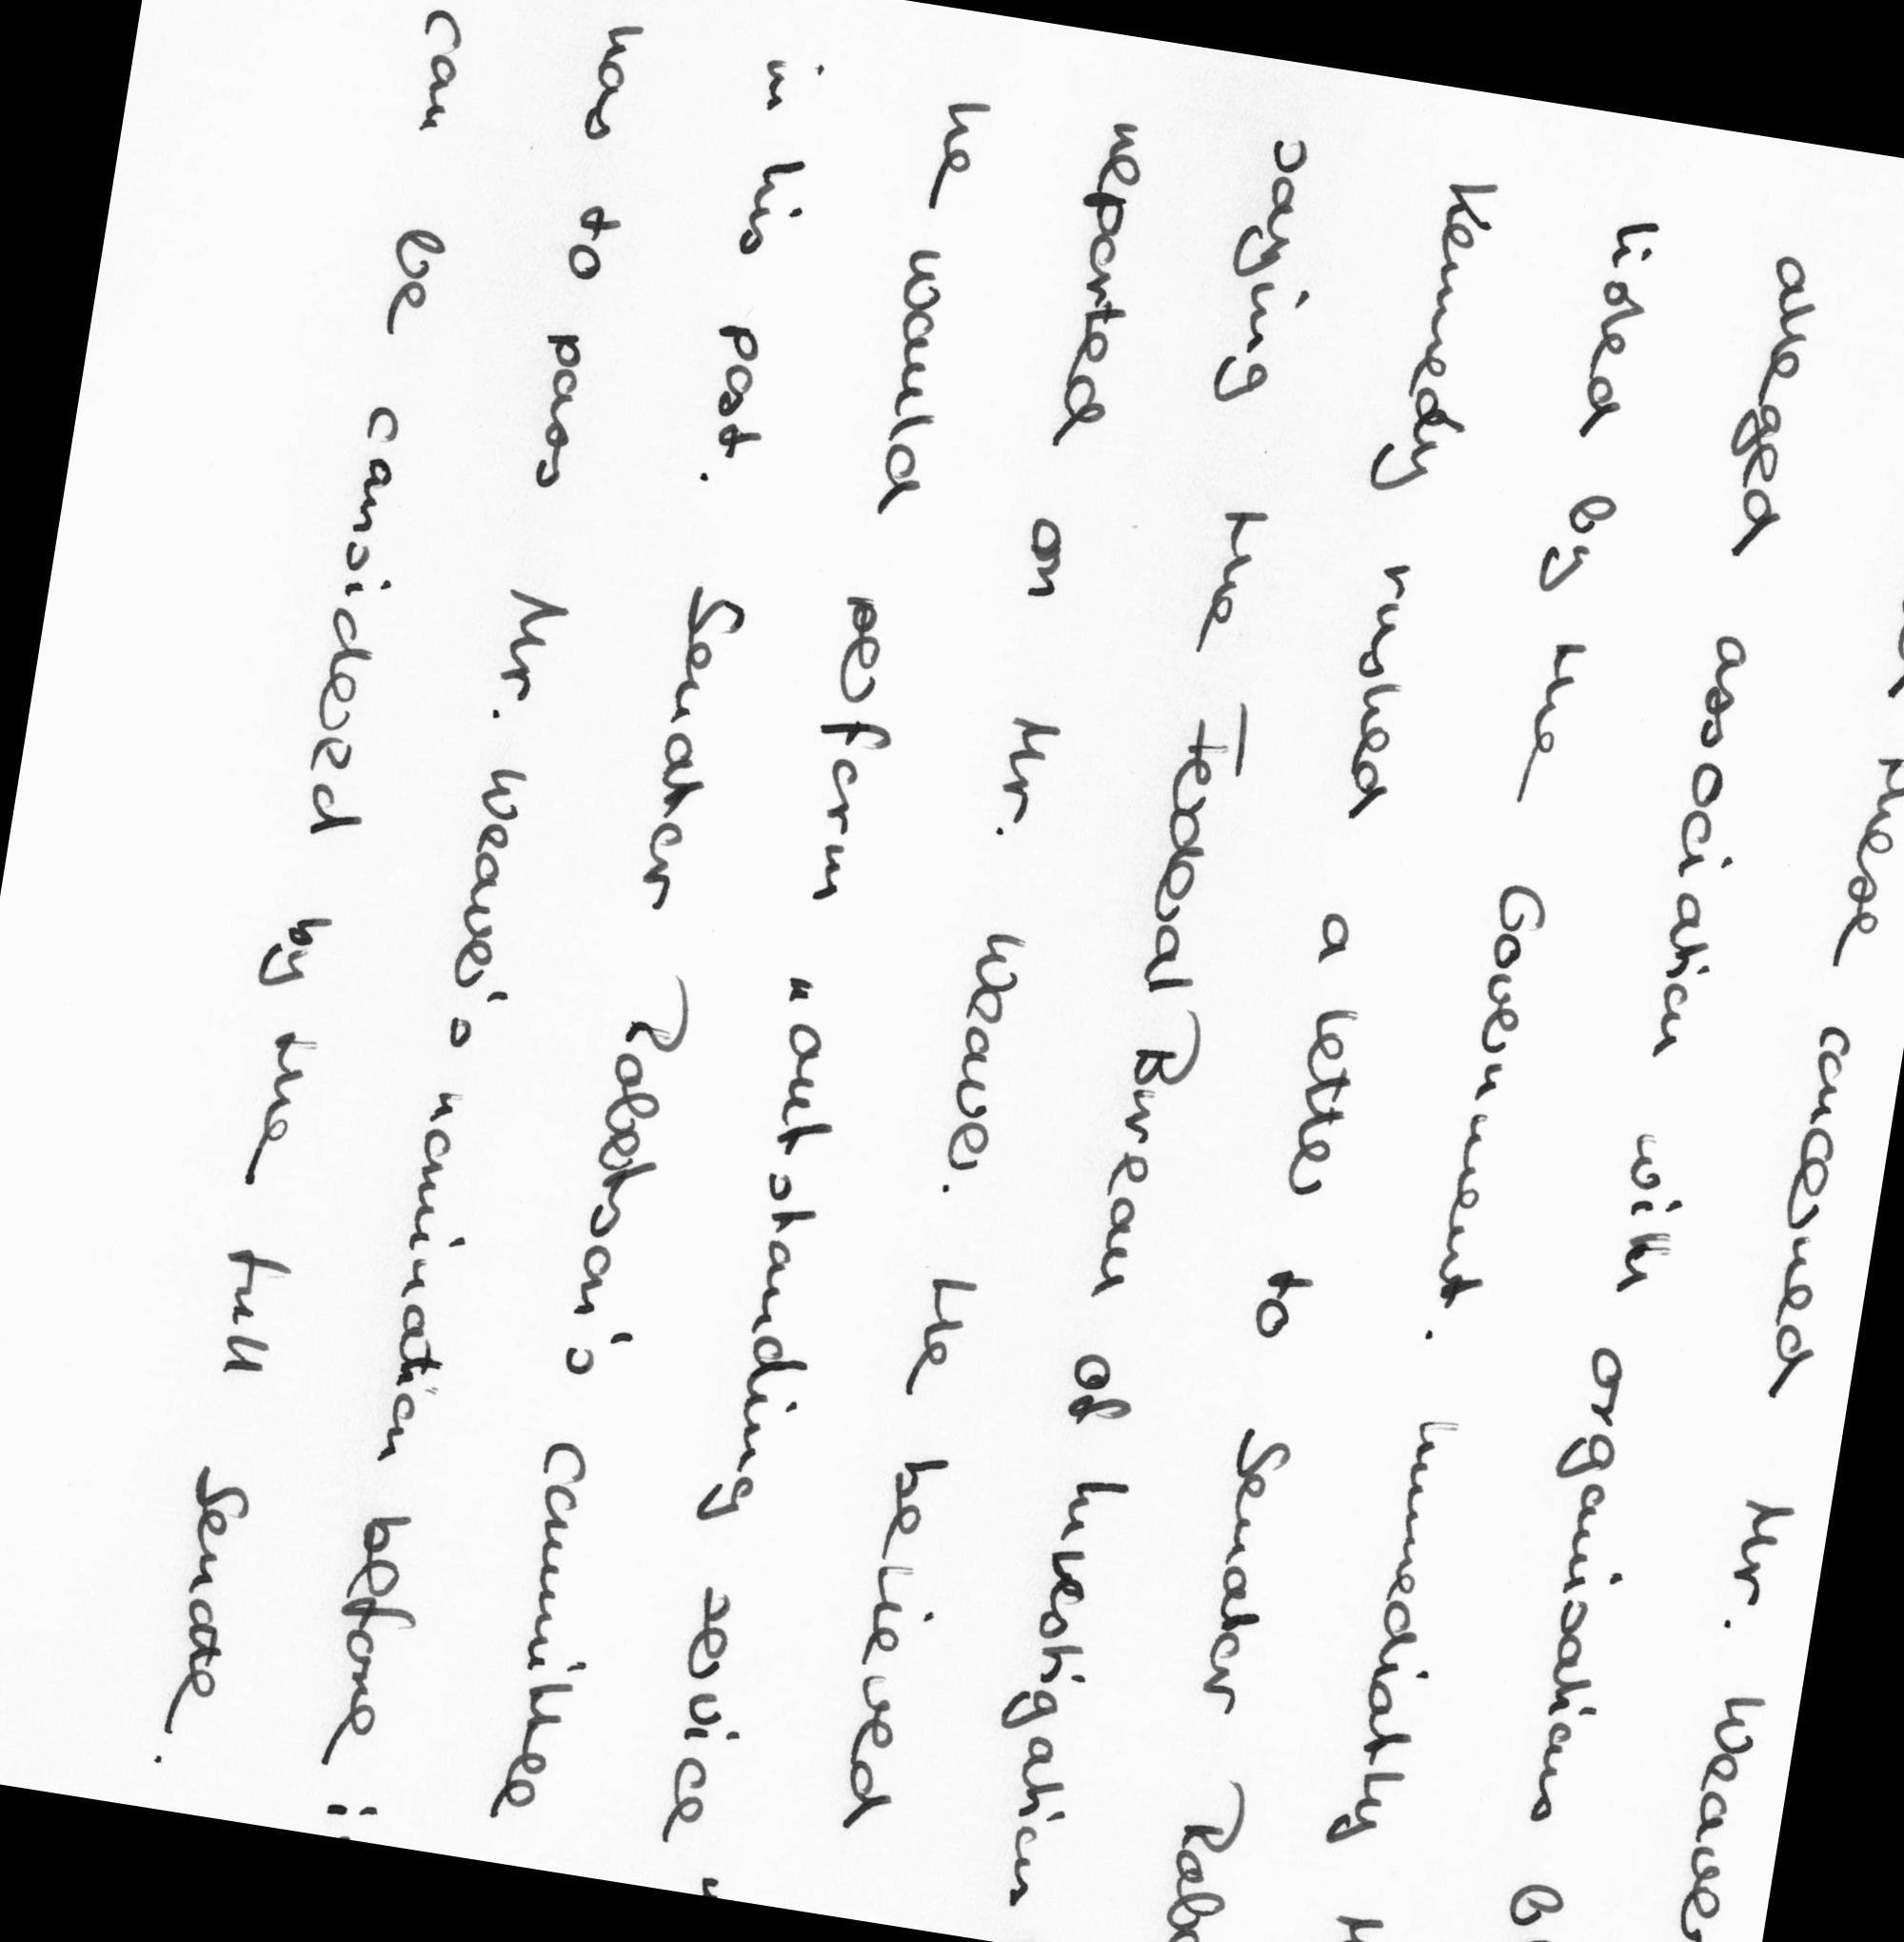 these concerned Mr. Weaver
alleged association with organisations
listed by the Government. Immediatly
Kennedy rushed a letter to Senator
saying the Federal Bureau of Investigation
reported on Mr. Weaver. He believed
he would perform "outstanding service"
in his post. Senator Robertson's Committee
has to pass Mr. Weaver's nomination before it
can be considered by the full Senate.